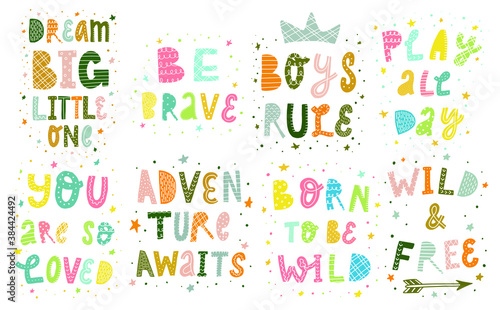 DREAM
BIG
LITTLE
ONE
BE
BRAVE
BOYS
RULE
PLAY
ALL
DAY
YOU
ARE SO
LOVED
ADVEN
TURE
AWAITS
BORN
TO BE
WILD
WILD
&
FREE
Adobe Stock | #384424492